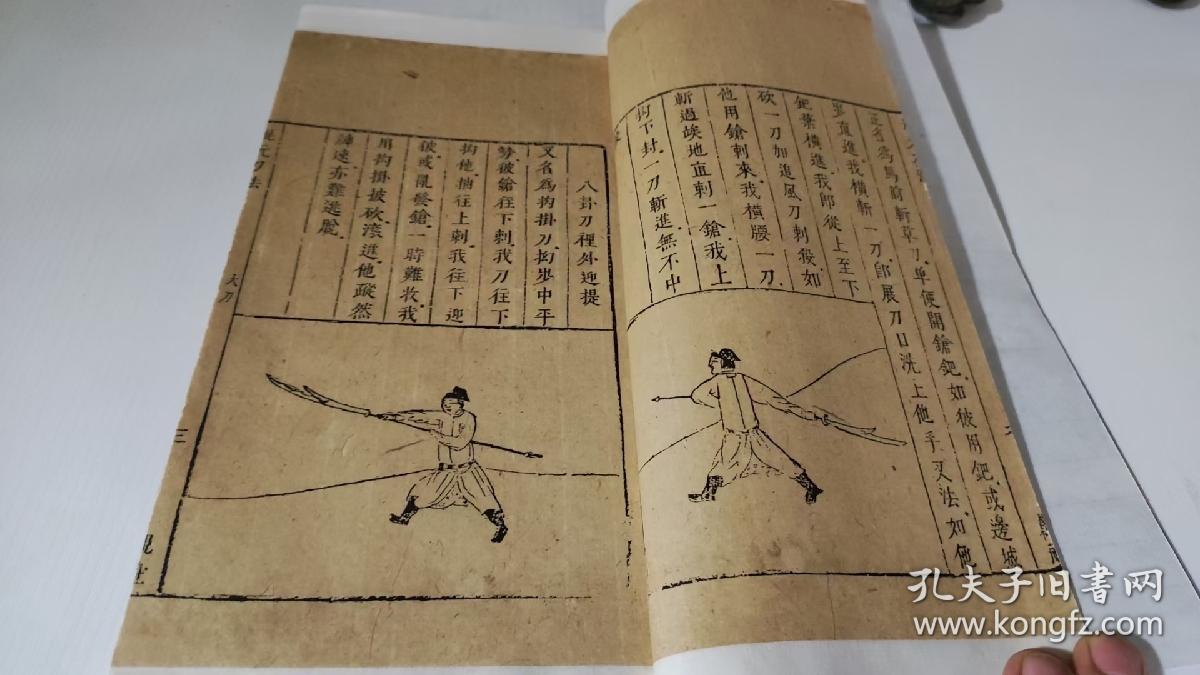 又名為馬前斬草刀單便開鎗鈀如彼用鈀或邊城
竪直進我橫斬一刀即展刀口洗上他手又法如他
鈀葉橫進我即從上至下
砍一刀如進風刀刺殺如
他用鎗刺來我橫腰一刀
斬過挨地直刺一鎗我上
鈎下封一刀斬進無不中
八卦刀裡外迎提
又名為鈎掛刀拗步中平
勢彼鎗往下刺我刀往下
鈎他抽往上刺我往下迎
彼或亂發鎗一時難救我
用鈎掛披砍滚進他蹤然
神速亦難逃脫
刀法
大刀
三
孔夫子旧书网
www.kongfz.com